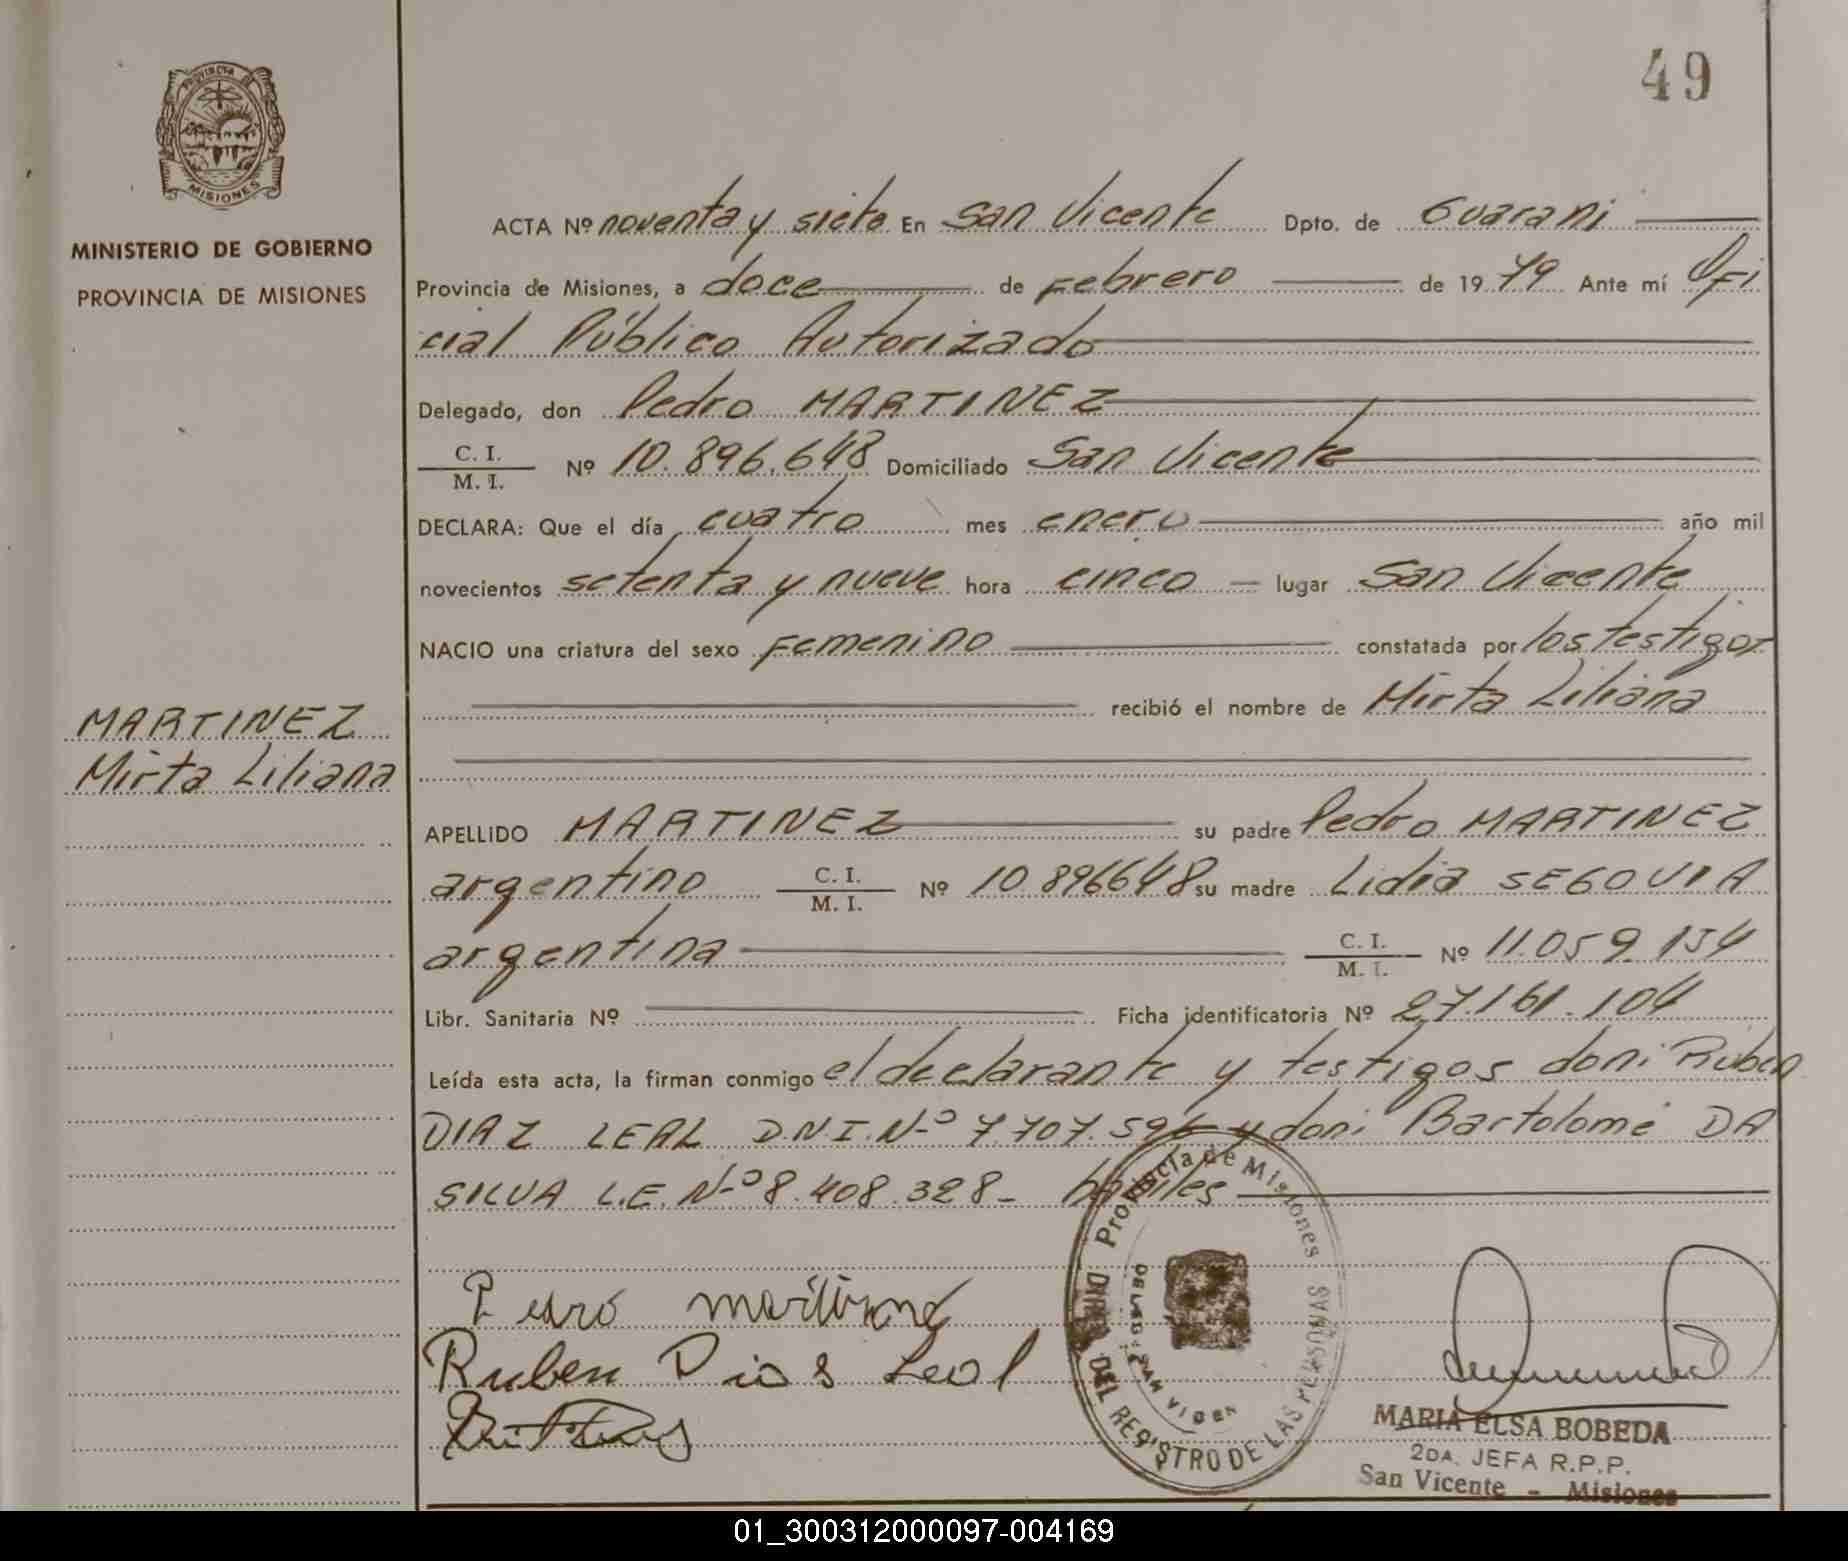 49
PROVINCIA DE
MISIONES
MINISTERIO DE GOBIERNO
PROVINCIA DE MISIONES
MARTINEZ
Mirta Liliana
ACTA Nº noventa y siete En San Vicente Dpto. de Guarani
Provincia de Misiones, a doce de Febrero de 1979 Ante mí Ofi
cial Público Autorizado
Delegado, don Pedro MARTINEZ
C. I.
M. I. Nº 10.896.648 Domiciliado San Vicente
DECLARA: Que el día cuatro mes enero año mil
novecientos setenta y nueve hora cinco lugar San Vicente
NACIO una criatura del sexo Femenino constatada por los testigos
recibió el nombre de Mirta Liliana
APELLIDO MARTINEZ su padre Pedro MARTINEZ
argentino C. I. M. I. Nº 10.896648 su madre Lidia SEGOVIA
argentina C. I. M. I. Nº 11.059.154
Libr. Sanitaria Nº Ficha identificatoria Nº 27.161.104
Leída esta acta, la firman conmigo el declarante y testigos don: Ruben
DIAZ LEAL D.N.I. Nº 7.707.596 y don: Bartolomé DA
SILVA L.E. Nº 8.408.328- hábiles
Pedro martinez
Ruben Dias Leal
Provincia de Misiones
DIREC. DEL REGISTRO DE LAS PERSONAS
DELEG. SAN VICEN
MARIA ELSA BOBEDA
2DA. JEFA R.P.P.
San Vicente - Misiones
01_300312000097-004169